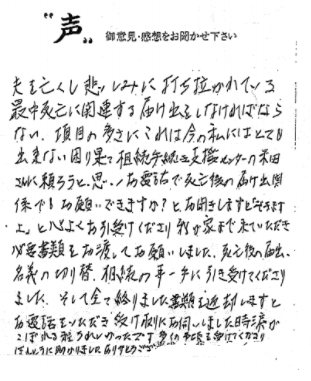 "声" 御意見・感想をお聞かせ下さい
夫を亡くし悲しみに打ち拉がれている
最中死亡に関連する届け出をしなければなら
ない、項目の多さにこれは今の私にはとても
出来ない困り果て相続手続き支援センターの本田
さんに頼ろうと思い、お電話で死亡後の届け出関
係でもお願いできますか?とお聞きしますとどうぞ
よ」と心よくお引受けくださり 我が家まで来ていただき
必要書類をお渡ししてお願いしました、死亡後の届出、
名義の切り替、相続の事一手に引き受けてくださり
ました、そして全て終りました書類を返却しますと
お電話をいただき受け取りにお伺いしました時涙が
こぼれる程うれしかったです 多くの手続を受けてくださり
ほんとうに助かりました ありがとうござ